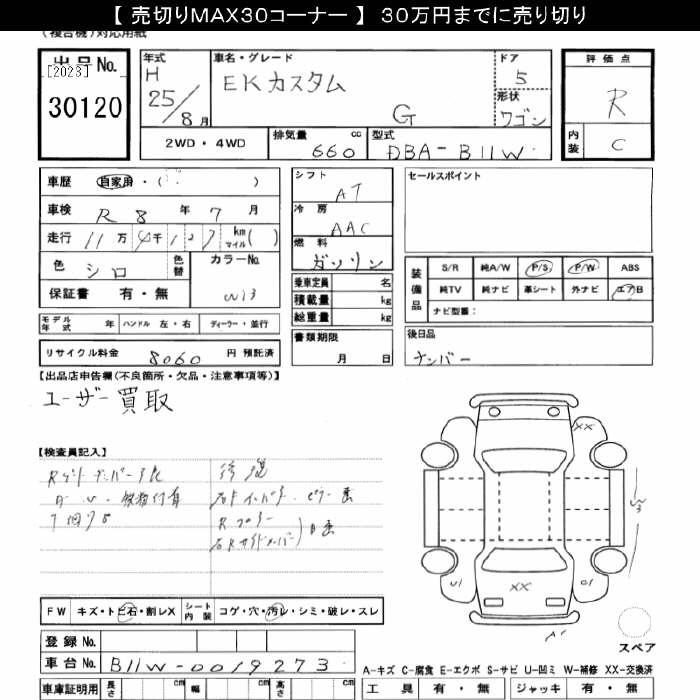 【 売切りMAX30コーナー 】 30万円までに売り切り
(複合機)対応用紙
出品No. 年式 車名・グレード ドア 評価点
[2023] H EKカスタム 5
30120 25/8月 G 形状 ワゴン R
2WD・4WD 排気量 660 cc 型式 DBA-B11W 内装 C
車歴 自家用・( ) シフト AT セールスポイント
車検 R 8 年 7 月 冷房 AAC
走行 11万 4千127 km マイル( ) 燃料 ガソリン
色 シロ 色替 カラーNo. W13
保証書 有・無
乗車定員 名
積載量 kg
総重量 kg
装備品 S/R 純A/W P/S P/W ABS
純TV 純ナビ 革シート 外ナビ エアB
ナビ型番:
モデル年式 年 ハンドル 左・右 ディーラー・並行
書類期限 月 日
後日品
ナンバー
リサイクル料金 8060 円 預託済
【出品店申告欄(不良箇所・欠品・注意事項等)】
ユーザー買取
【検査員記入】
修復
XX
U1
XX
A1
スペア
FW キズ・トビ石・割レX シート内装 コゲ・穴・汚レ・シミ・破レ・スレ
登録No.
車台No. B11W-0019273
A-キズ C-腐食 E-エクボ S-サビ U-凹ミ W-補修 XX-交換済
車庫証明用 長さ cm 幅 cm 高さ cm 工具 有・無 ジャッキ 有・無